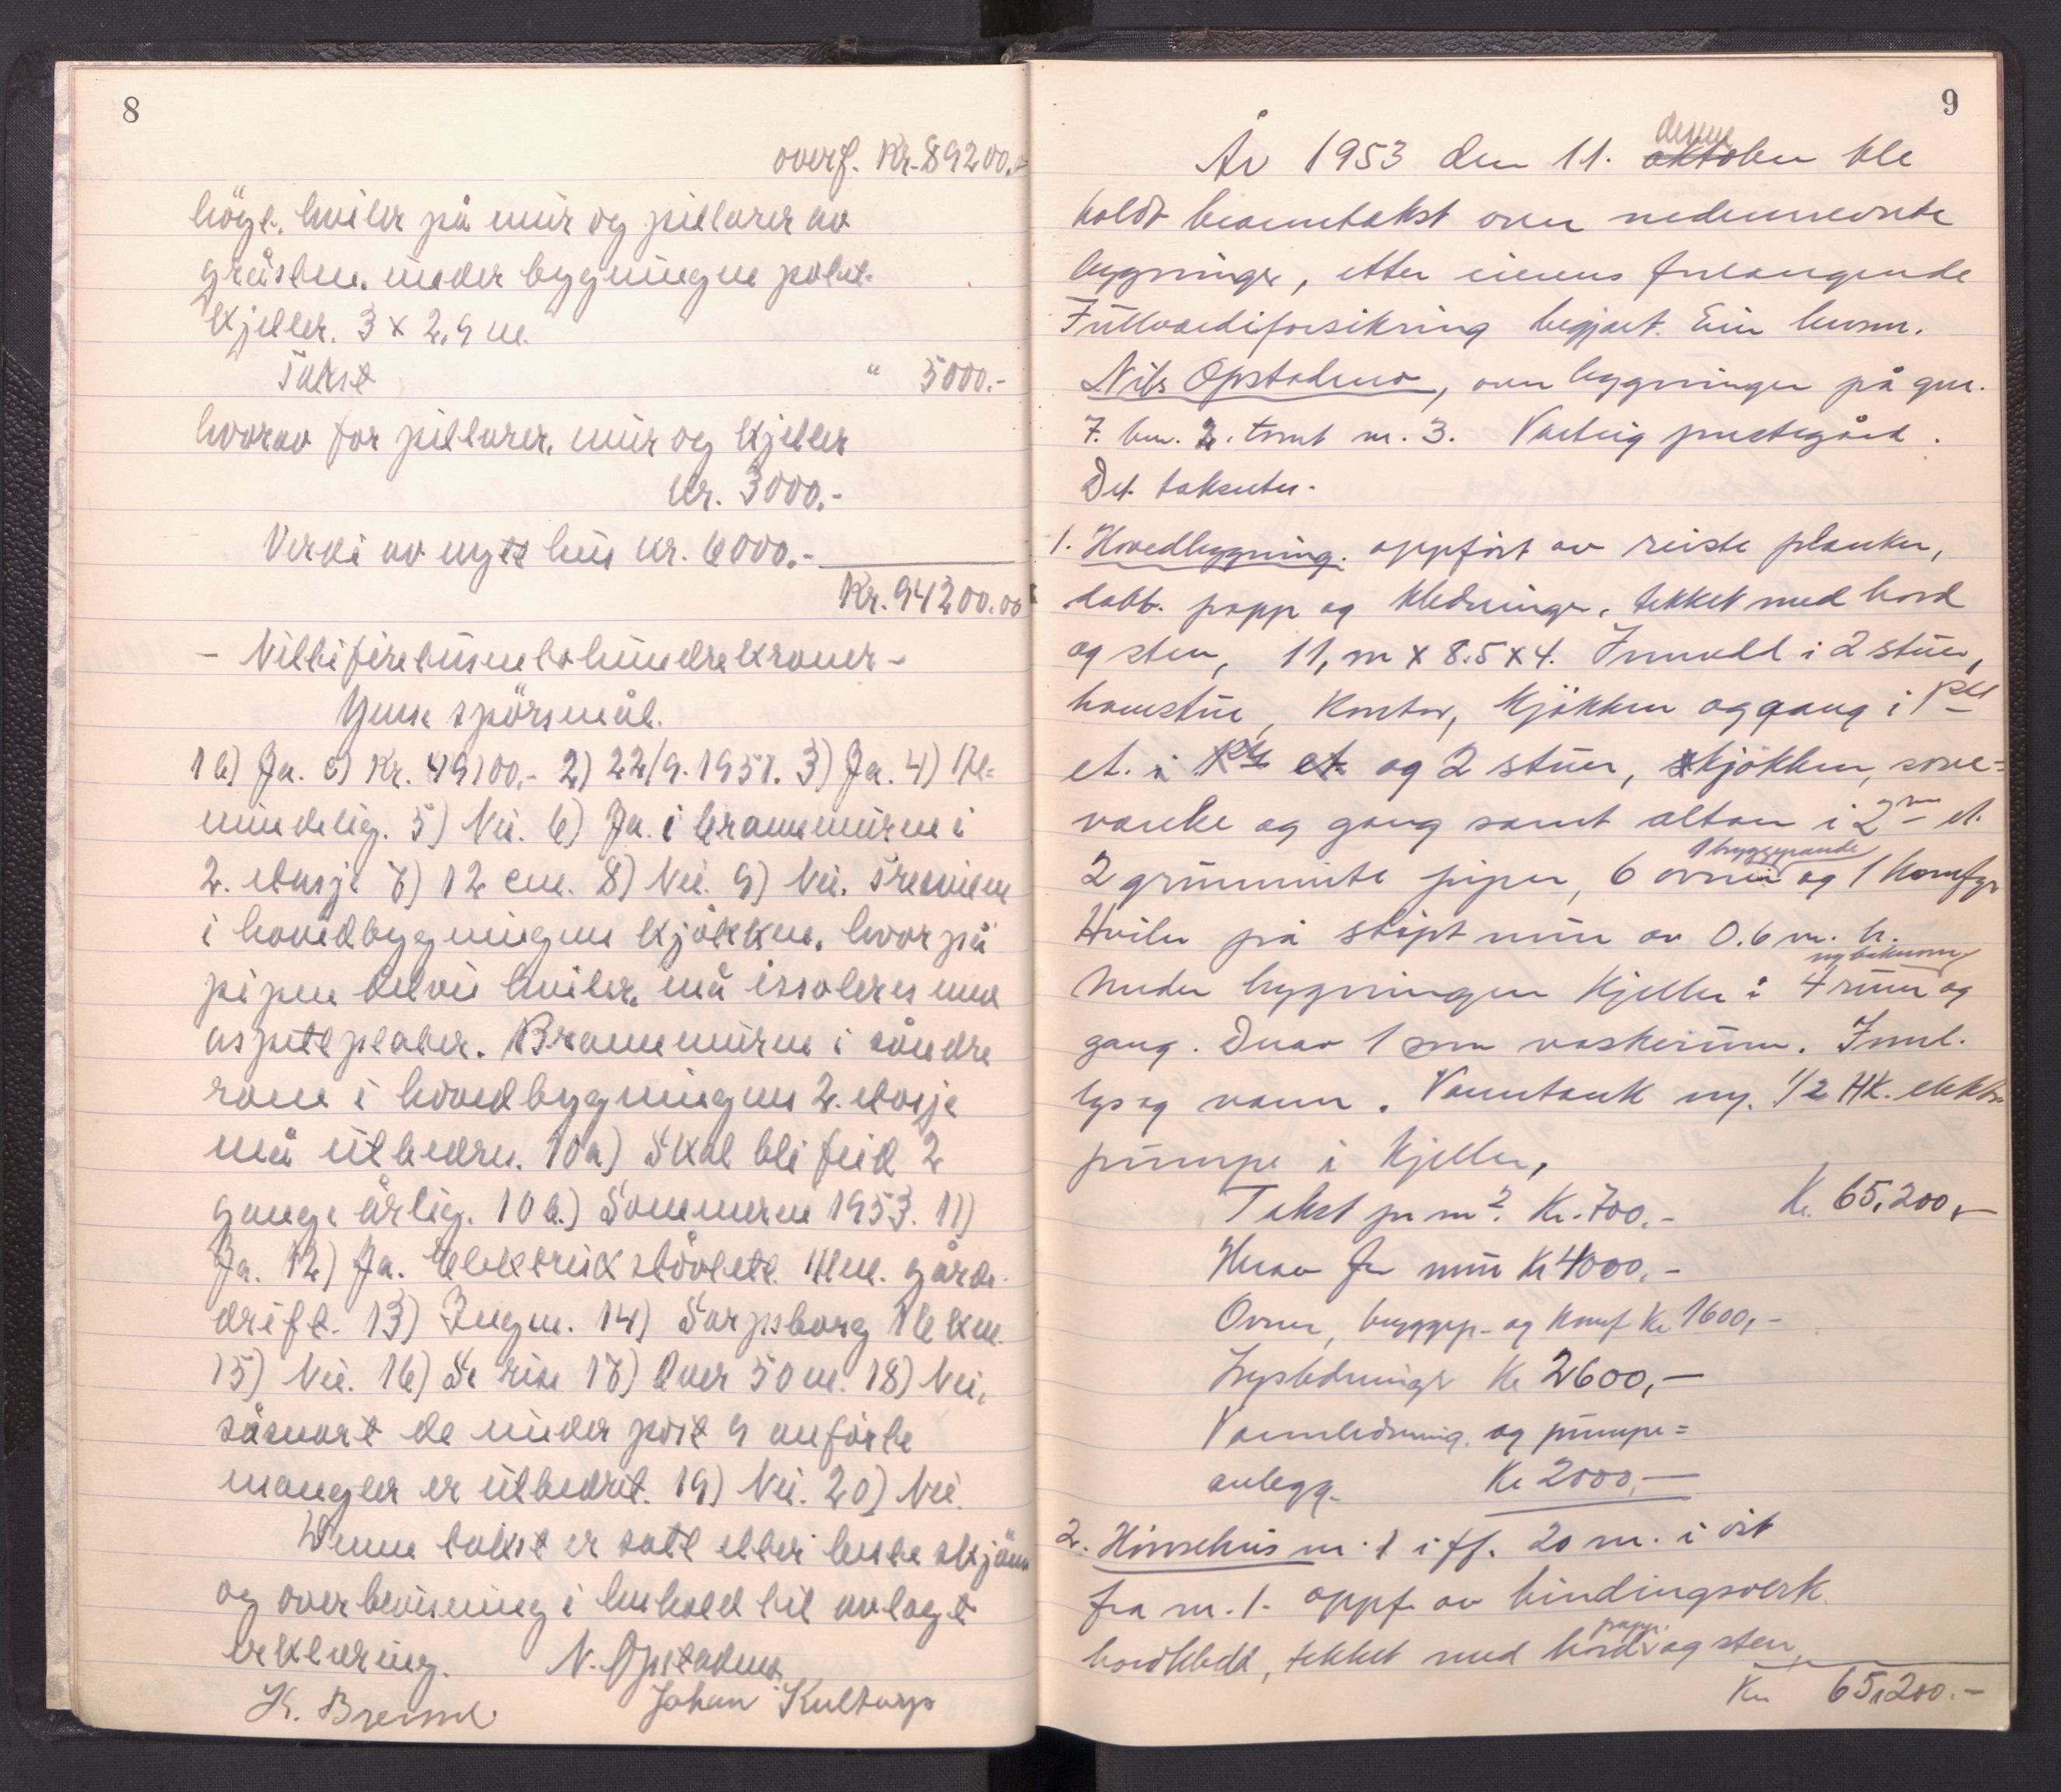 8
overf. Kr. 89200.-
högt, hviler på mur og pillarer av
gråsten. under bygningen potet-
kjeller. 3 x 2,9 m.
Takst " 5000.-
hvorav for pillarer, mur og kjeller
kr. 3000.-
Verdi av nytt hus kr. 6000.-
Kr. 94200.00
- Nittifiretusentohundrekroner -
Ymse spörsmål.
1 b) Ja. c) Kr. 49100.- 2) 22/9.1951. 3) Ja. 4) Al-
mindelig. 5) Nei. 6) Ja. i brannmuren i
2. etasje 7) 12 cm. 8) Nei. 9) Nei. Treveien
i hovedbygningens kjökken, hvorpå
pipen delvis hviler, må issoleres med
plater. Brannmuren i söndre
rom i hovedbygningens 2. etasje
må utbedres. 10a) Skal bli feid 2
gange årlig. 10 b.) Sommeren 1953. 11)
Ja. 12) Ja. Elektrisk stövtett. Alm. gårds-
drift. 13) Ingen. 14) Sarpsborg 16 km.
15) Nei. 16) Se riss 17) Over 50 m. 18) Nei,
såsnart de under post 9 anförte
mangler er utbedret. 19) Nei. 20) Nei.
Denne takst er satt etter beste skjönn
og overbevisning i henhold til avlagt
erklæring. N. Opstadmo
K. Johan Kultorp
9
denne
År 1953 den 11. oktober ble
holdt branntakst over nedennevnte
bygninger, etter eierens forlangende
Fullverdiforsikring begjært. Eier
Nils Opstadmo, over bygninger på gnr.
7. bnr. 2. tomt nr. 3. Varteig prestegård.
Det takseres.
1. Hovedbygning. oppfört av reiste planker,
dobb. papp og kledninger, tekket med bord
og sten, 11, m x 8.5 x 4. Innredd i 2 stuer,
kontor, kjökken og gang i 1ste
et. i 1ste et og 2 stuer, kjökken, sove-
værelse og gang samt altan i 2nen et.
1 bryggepande
2 grunnmurte piper, 6 ovner og 1 komfyr
Hviler på stöpt mur av 0.6 m. h.
og bakerovn
Under bygningen kjeller i 4 rum og
gang. Derav 1 som vaskerum. Innl.
lys og vann. Vanntank og 1/2 HK. elektr.
pumpe i kjeller,
Takst pr m². Kr. 700.- Kr. 65.200,-
Herav for mur Kr 4000.-
Ovner, bryggep- og komf Kr 1600,-
Lysledninger Kr 2600,-
Vannledning og pumpe=
anlegg. Kr 2000,-
2. Hönsehus nr. 1 i ff. 20 m. i öst
fra nr. 1. oppf. av bindingsverk
papp.
bordkledd, tekket med bord og sten,
Kr 65,200.-